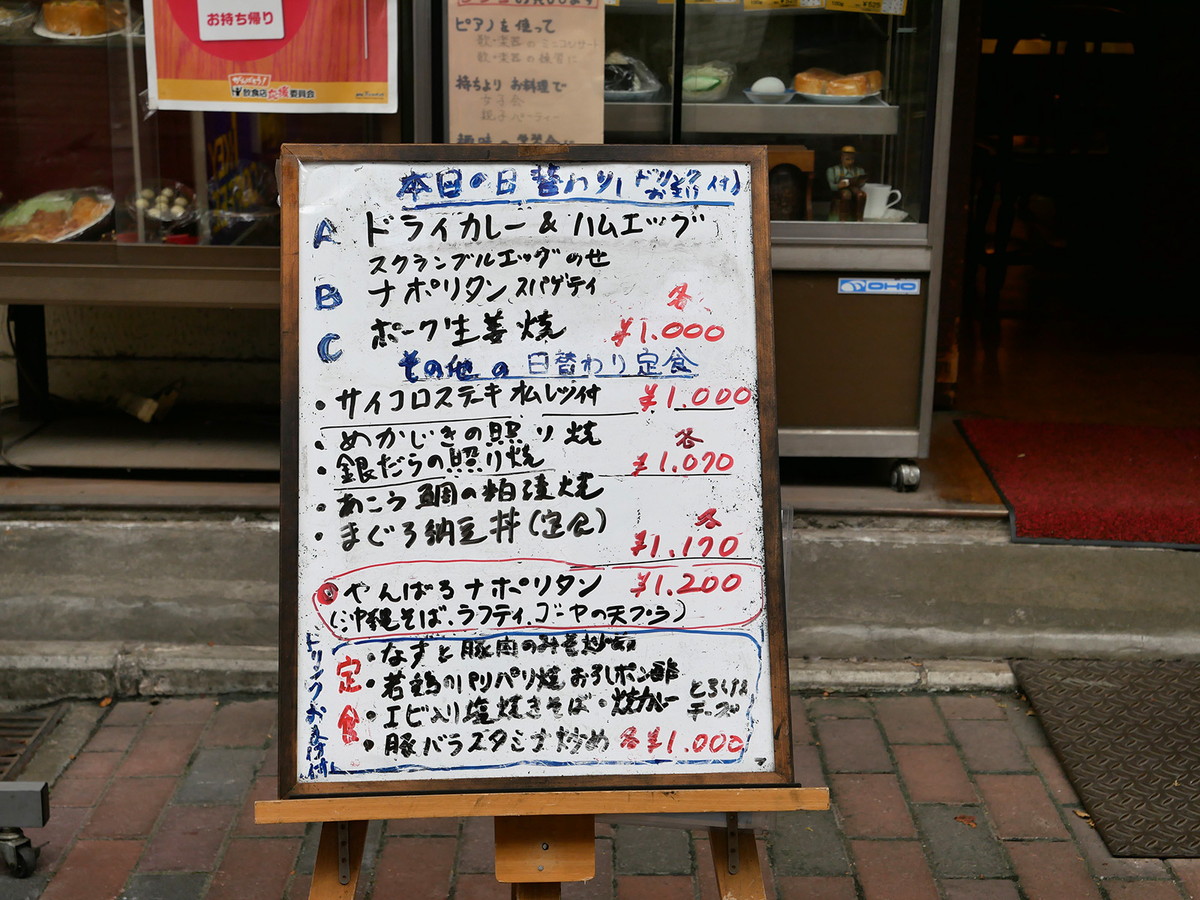 お持ち帰り
がんばろう!
飲食店応援委員会
ピアノを使って
歌・楽器のミニコンサート
歌・楽器の練習に
持ちより お料理で
女子会
親子パーティー
本日の日替わり ドリンク おかわり 付
A ドライカレー & ハムエッグ
スクランブルエッグのせ
B ナポリタン スパゲティ
各
C ポーク生姜焼 ¥1.000
その他の日替わり定食
・サイコロステーキ オムレツ付 ¥1.000
・めかじきの照り焼 各
・銀だらの照り焼 ¥1.070
・あこう鯛の粕漬焼
・まぐろ納豆丼(定食) 各
¥1.170
やんばるナポリタン ¥1.200
(沖縄そば、ラフティ、ゴーヤの天プラ)
定食
・なすと豚肉のみそ炒め
・若鶏のパリパリ焼おろしポン酢
・エビ入り塩焼きそば・焼カレー とろける チーズ
・豚バラスタミナ炒め 各¥1.000
OHO